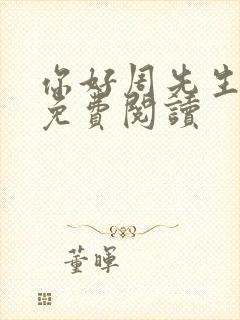 你好周先生
免費閱讀
董暉